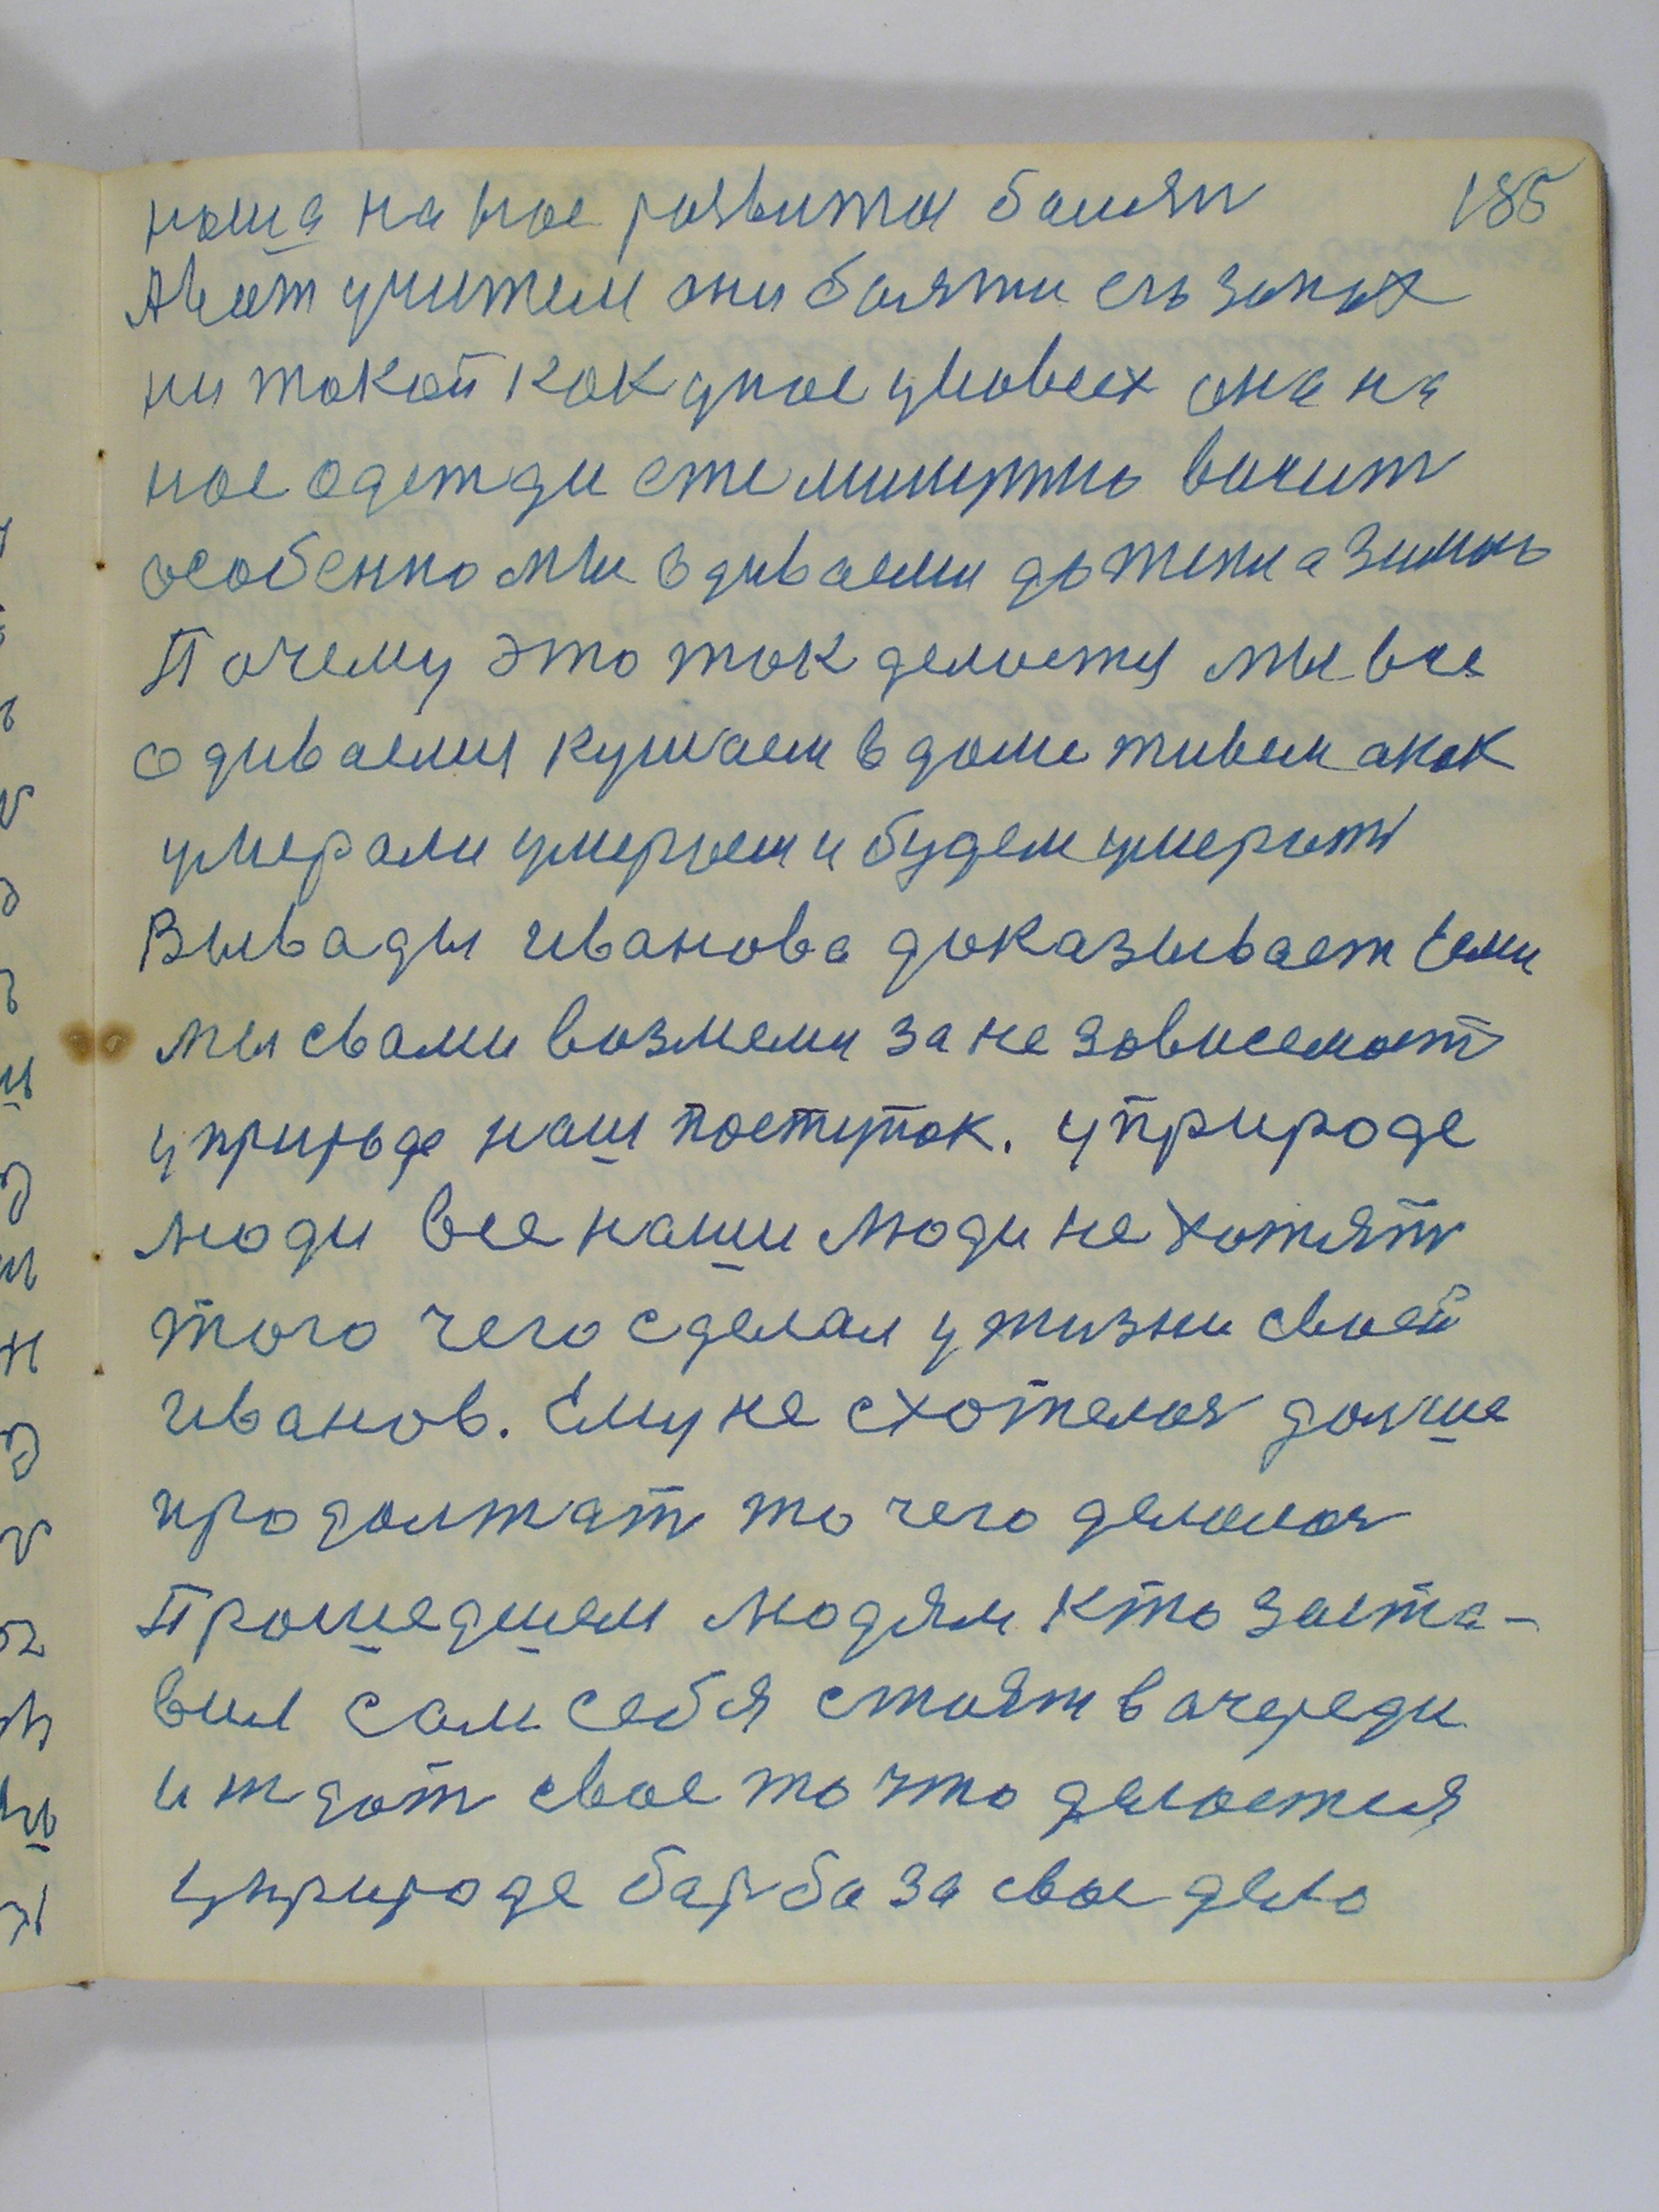 185
наша на нас развитая
А вот учителя они
ни такой как у нас у всех она на
нас одежди висит
особенно мы одиваеми до тепла зимою
Почему это так делается мы все
одиваемся кушаем в доме живем а как
умерали умераем и будем умерать
Вывады Иванова доказывает Если
мы свами возмеми за не зависемост
у природе наш поступок. у природе
люди все наши люди не хотять
того чего сделал у жизни своей
Иванов. Ему не схотелось дальше
продолжать то чего делалось
Прошедшем людям кто заста-
вил сам себя стоять в очереди
и ждать свое то что делается
у природе барба за свое дело